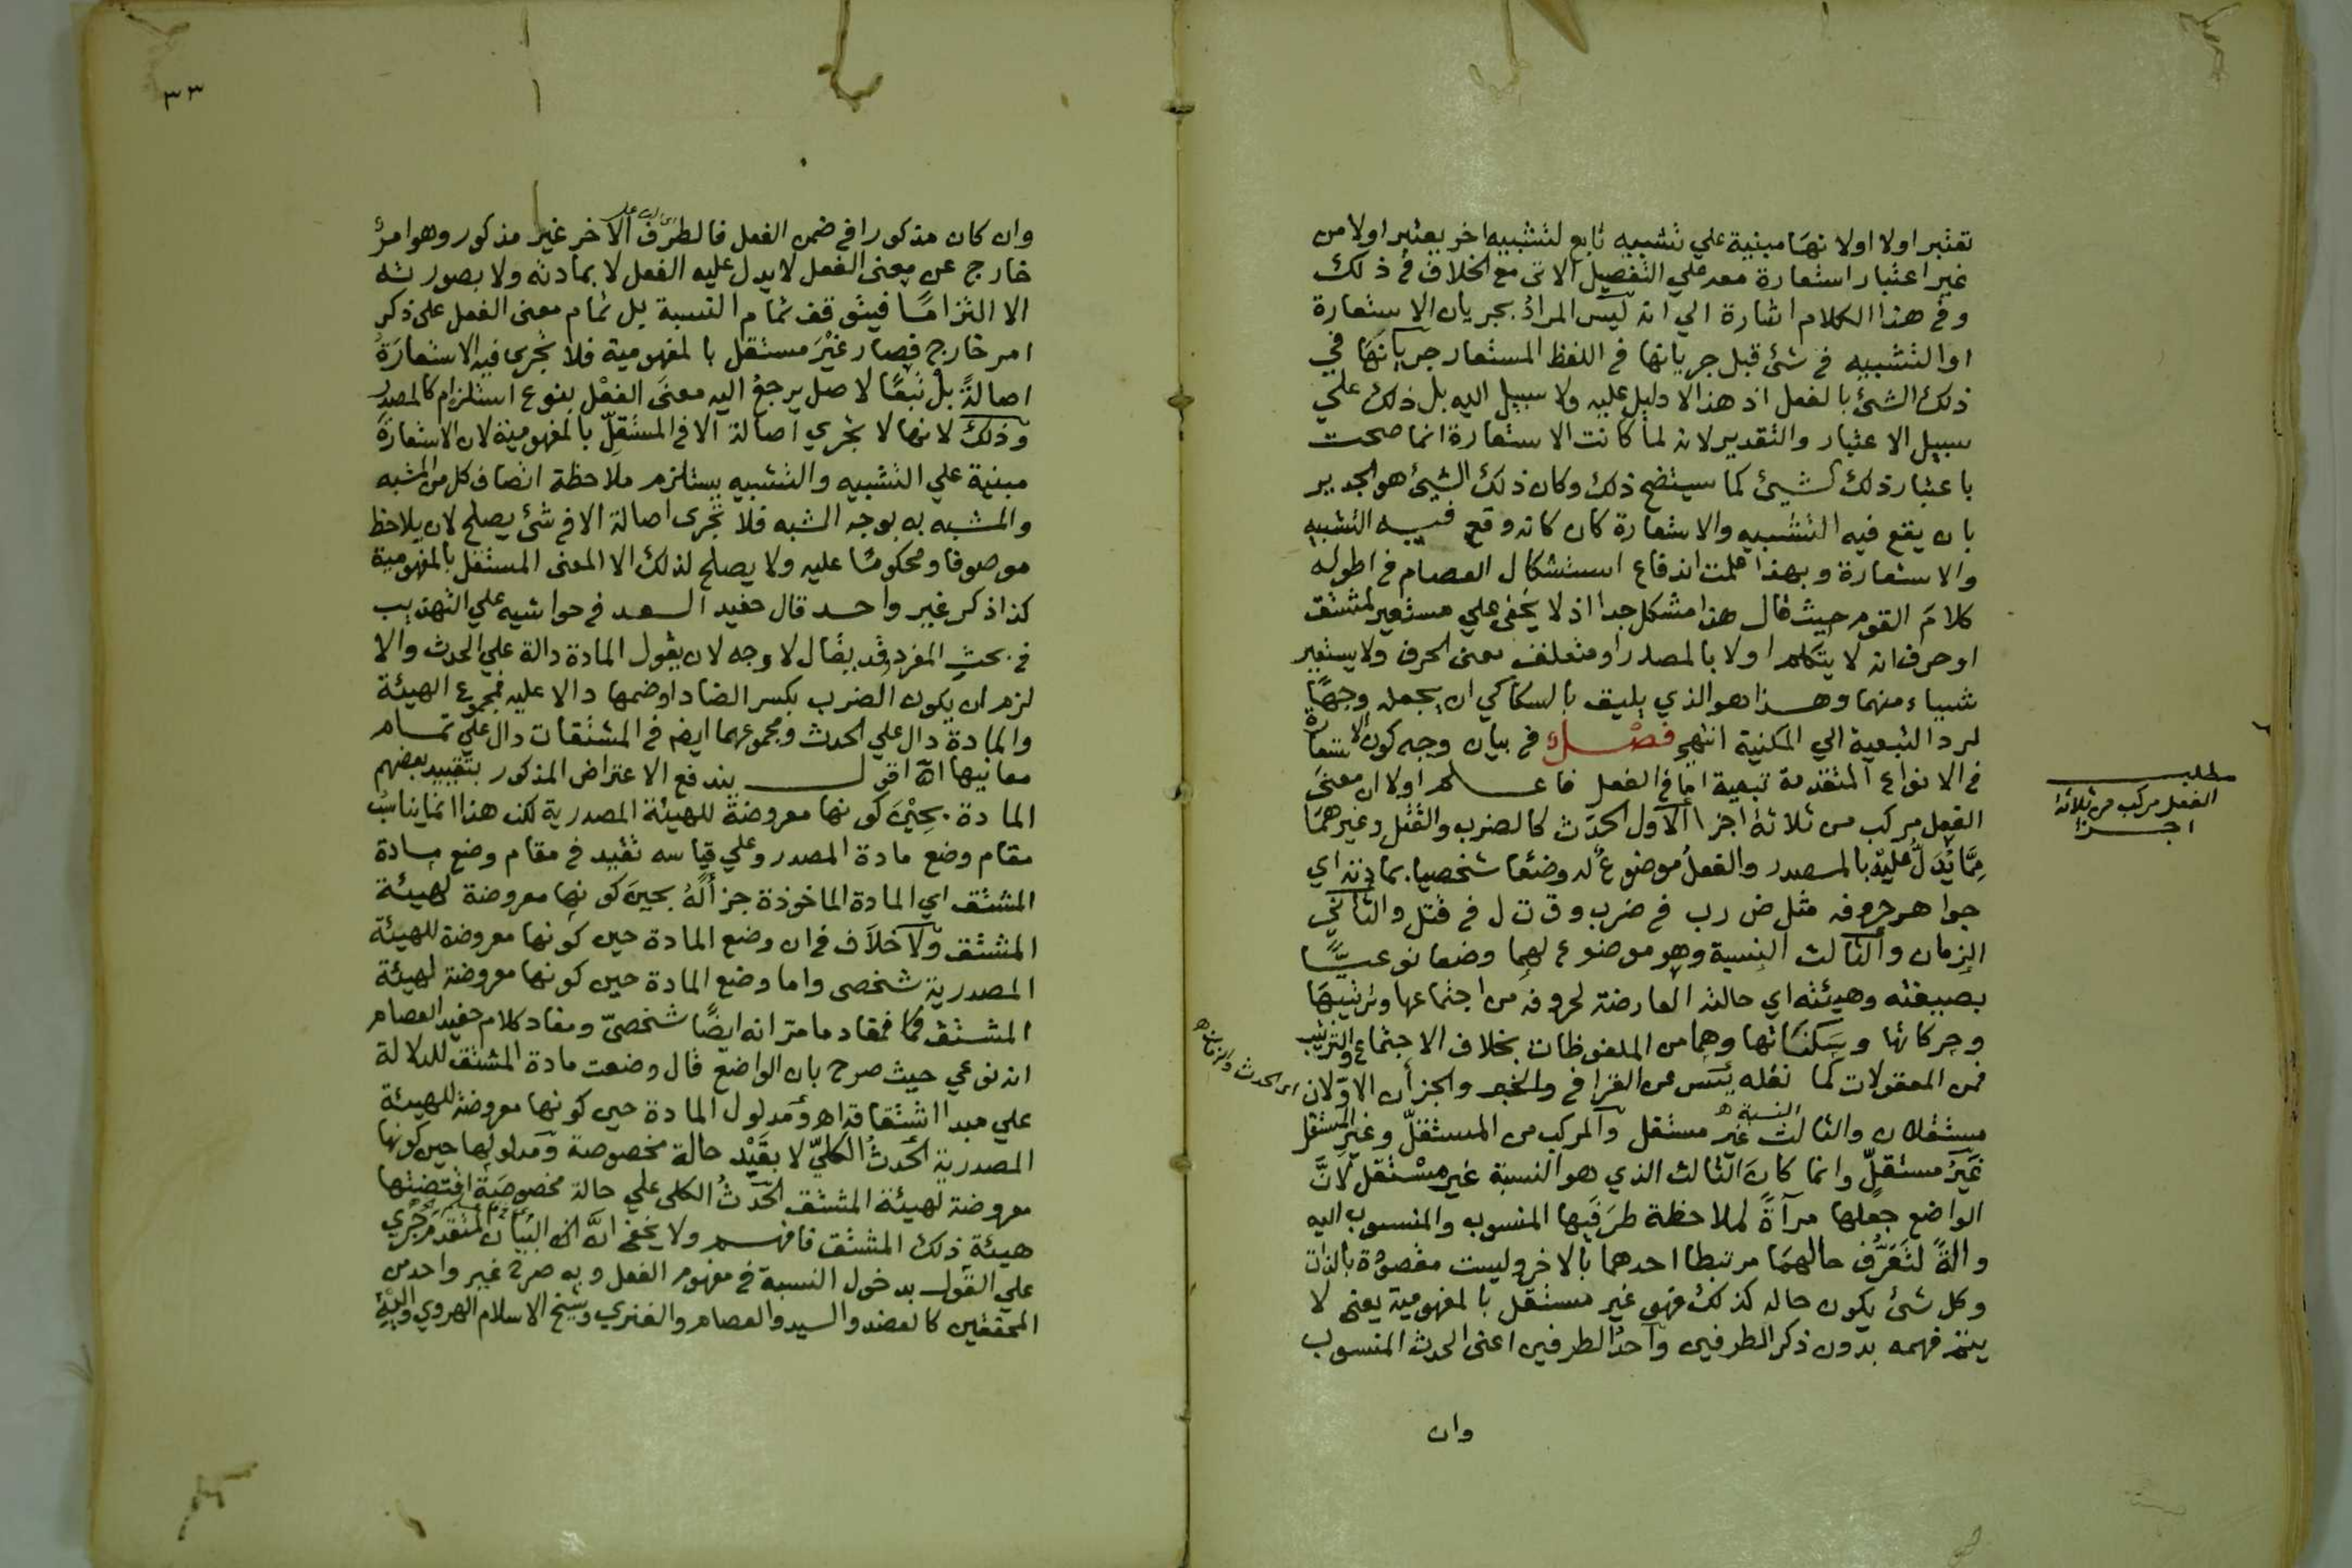 تعتبر اولا اولانها مبنية علي تشبيه تابع لتشبيه اخر يعتبر اولا من
غير اعتبار استعارة معه علي التفصيل الاتي مع الخلاف في ذلك
وفي هذا الكلام اشارة الي انه ليس المراد بجريان الاستعارة
او التشبيه في شئ قبل جريانها في اللفظ المستعار جريانها في
ذلك الشئ بالفعل اذ هذا لا دليل عليه ولا سبيل اليه بل ذلك علي
سبيل الاعتبار والتقدير لانه لما كانت الاستعارة انما صحت
باعتبار ذلك الشيئ كما سيتضح ذلك وكان ذلك الشيئ هو الجدير
بان يقع فيه التشبيه والاستعارة كان كانه وقع فيه التشبيه
والاستعارة وبهذا علمت اندفاع استشكال العصام في اطوله
كلام القوم حيث قال هذا مشكل جدا اذ لا يخفى علي مستعير لمشتق
او حرف انه لا يتكلم اولا بالمصدر او متعلق معنى الحرف ولا يستعير
شيئاء منهما وهذا هو الذي يليق بالسكاكي ان يجعله وجها
لرد التبعية الي المكنية انتهي فصل في بيان وجه كون الاستعارة
في الانواع المتقدمة تبعية اما في الفعل فاعلم اولا ان معنى
الفعل مركب من ثلاثة اجزا الاول الحدث كالضرب والقتل وغيرهما
مما يدل عليه بالمصدر والفعل موضوع له وضعا شخصيا بمادته اي
جواهر حروفه مثل ض رب في ضرب وق ت ل في قتل والثاني
الزمان والثالث النسبة وهو موضوع لهما وضعا نوعيا
بصيغته وهيئته اي حالته العارضة لحروفه من اجتماعها وترتيبها
وحركاتها وسكناتها وهما من الملفوظات بخلاف الاجتماع والترتيب
فمن المعقولات كما نقله يس عن القرافي والخبر والجزأن الاولان
اي الحدث والزمان اه
مستقلان والثالث غير مستقل والمركب من المستقل وغير المستقل
النسبة اه
غير مستقل وانما كان الثالث الذي هو النسبة غير مستقل لان
الواضع جعلها مرآة لملاحظة طرفيها المنسوب والمنسوب اليه
والة لتعرف حالهما مرتبطا احدهما بالاخر وليست مقصودة بالذات
وكل شئ يكون حاله كذلك فهو غير مستقل بالمفهومية يعني لا
يتم فهمه بدون ذكر الطرفين واحد الطرفين اعني الحدث المنسوب
وان
مطلب
الفعل مركب من ثلاثة
اجزا
٣٣
وان كان مذكورا في ضمن الفعل فالطرف الاخر غير مذكور وهو امر
خارج عن معنى الفعل لا يدل عليه الفعل لا بمادته ولا بصورته
الا التزاما فيتوقف تمام النسبة بل تمام معنى الفعل على ذكر
امر خارج فصار غير مستقل بالمفهومية فلا تجرى فيه الاستعارة
اصالة بل تبعا لاصل يرجع اليه معنى الفعل بنوع استلزام كالمصدر
وذلك لانها لا تجري اصالة الا في المستقل بالمفهومية لان الاستعارة
مبنية علي التشبيه والتشبيه يستلزم ملاحظة اتصاف كل من المشبه
والمشبه به بوجه الشبه فلا تجرى اصالة الا في شئ يصلح لان يلاحظ
موصوفا ومحكوما عليه ولا يصلح لذلك الا المعنى المستقل بالمفهومية
كذا ذكر غير واحد قال حفيد السعد في حواشيه علي التهذيب
في بحث المفرد قد يقال لا وجه لان يقول المادة دالة علي الحدث والا
لزم ان يكون الضرب بكسر الضاد او ضمها دالا عليه فمجموع الهيئة
والمادة دال علي الحدث ومجموعهما ايضا في المشتقات دال علي تمام
معانيها اه اقول يندفع الاعتراض المذكور بتقييد بعضهم
المادة بحين كونها معروضة للهيئة المصدرية لكن هذا انما يناسب
مقام وضع مادة المصدر وعلي قياسه تقيد في مقام وضع مادة
المشتق اي المادة الماخوذة جزأ له بحين كونها معروضة لهيئة
المشتق ولا خلاف في ان وضع المادة حين كونها معروضة للهيئة
المصدرية شخصي واما وضع المادة حين كونها معروضة لهيئة
المشتق فمفاد ما مر انه ايضا شخصي ومفاد كلام حفيد العصام
انه نوعي حيث صرح بان الواضع قال وضعت مادة المشتق للدلالة
علي مبدا اشتقاقه اه ومدلول المادة حين كونها معروضة للهيئة
المصدرية الحدث الكلي لا بقيد حالة مخصوصة ومدلولها حين كونها
معروضة لهيئة المشتق الحدث الكلي علي حالة مخصوصة اقتضتها
هيئة ذلك المشتق فافهم ولا يخفى ان البيان المتقدم جري
علي القول بدخول النسبة في مفهوم الفعل وبه صرح غير واحد من
المحققين كالعضد والسيد والعصام والفنري وشيخ الاسلام الهروي